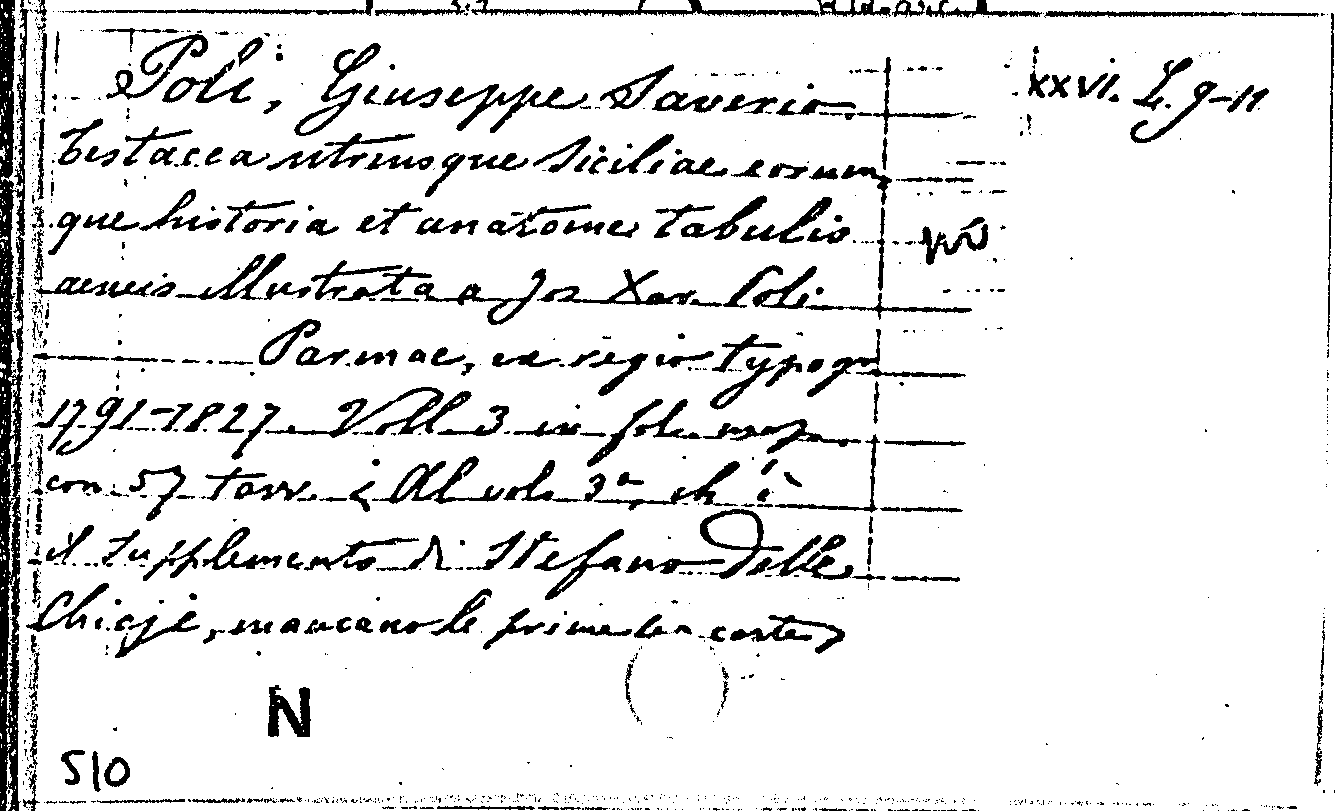 Poli, Giuseppe Saverio.
XXVI. L. 9-11
Testacea utriusque Siciliae eorum
que historia et anatome tabulis
aeneis illustrata a Jos Xav. Poli
Parmae, ex regio typogr
1791-1827. Voll. 3 in fol. mass.
con 57 tavv. (Al vol. 3°, ch'è
il supplemento di Stefano Delle
Chiaje, mancano le prime carte)
N
510